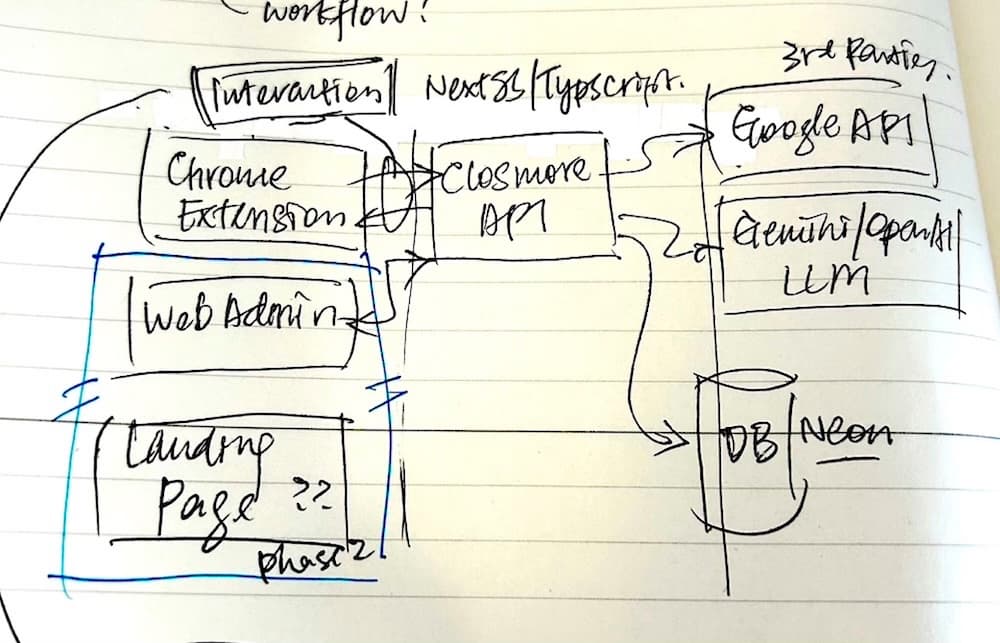 workflow?
Interaction
NextJS/Typscript.
3rd Parties.
Chrome
Extension
Closmore
API
Google API
Gemini/OpenAI
LLM
Web Admin
Landing
Page ??
phase 2
DB
Neon